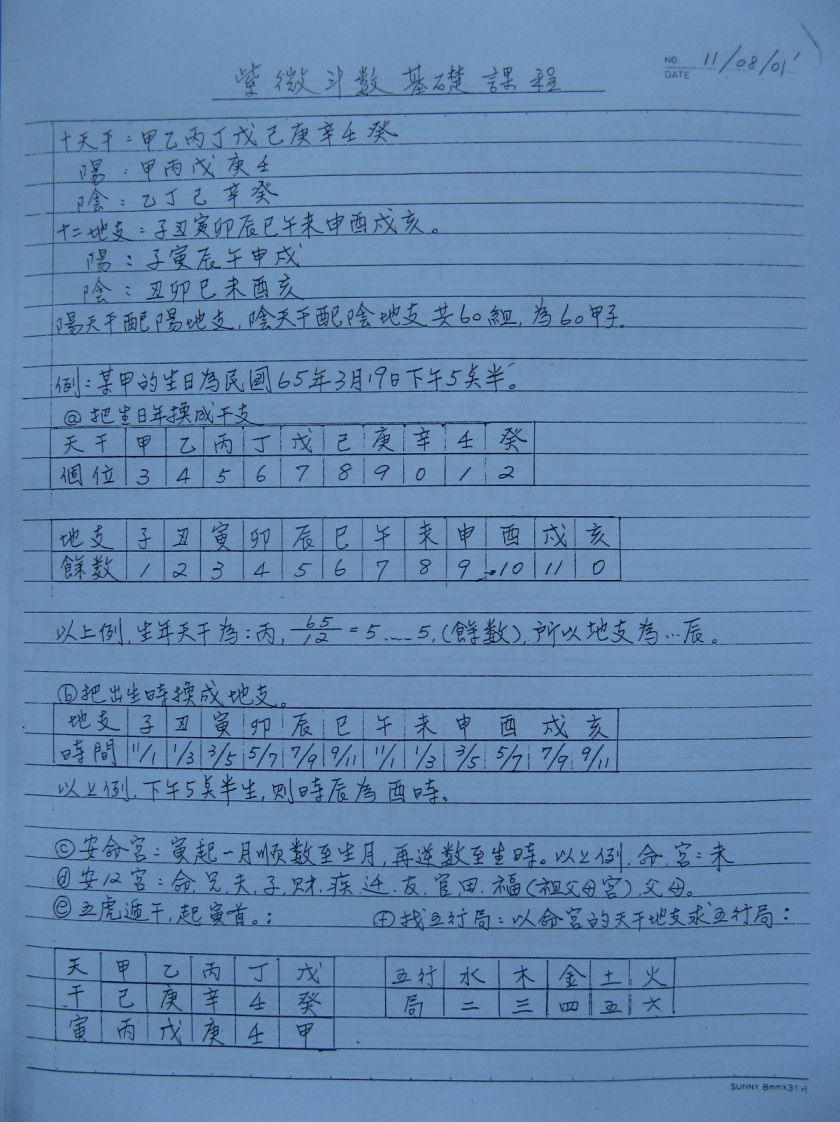 NO
DATE 11/08/01'
紫微斗数基礎課程
十天干：甲乙丙丁戊己庚辛壬癸
陽：甲丙戊庚壬
陰：乙丁己辛癸
十二地支：子丑寅卯辰巳午未申酉戌亥。
陽：子寅辰午申戌
陰：丑卯巳未酉亥
陽天干配陽地支，陰天干配陰地支共60組，為60甲子。
例：某甲的生日為民國65年3月19日下午5点半。
ⓐ把生日年換成干支
天干 甲 乙 丙 丁 戊 己 庚 辛 壬 癸
個位 3 4 5 6 7 8 9 0 1 2
地支 子 丑 寅 卯 辰 巳 午 未 申 酉 戌 亥
餘數 1 2 3 4 5 6 7 8 9 10 11 0
以上例，生年天干為：丙，65/12=5……5，(餘數)，所以地支為…辰。
ⓑ把出生時換成地支。
地支 子 丑 寅 卯 辰 巳 午 未 申 酉 戌 亥
時間 11/1 1/3 3/5 5/7 7/9 9/11 11/1 1/3 3/5 5/7 7/9 9/11
以上例，下午5点半生，則時辰為酉時。
ⓒ安命宮：寅起一月順数至生月，再逆数至生時。以上例，命宮：未
ⓓ安12宮：命、兄、夫、子、财、疾、迁、友、官、田、福(祖父母宮)、父母。
ⓔ五虎遁干，起寅首。： ⓕ找五行局：以命宮的天干地支求五行局：
天 甲 乙 丙 丁 戊 五行 水 木 金 土 火
干 己 庚 辛 壬 癸 局 二 三 四 五 六
寅 丙 戊 庚 壬 甲
SUNNY 8mm×31行